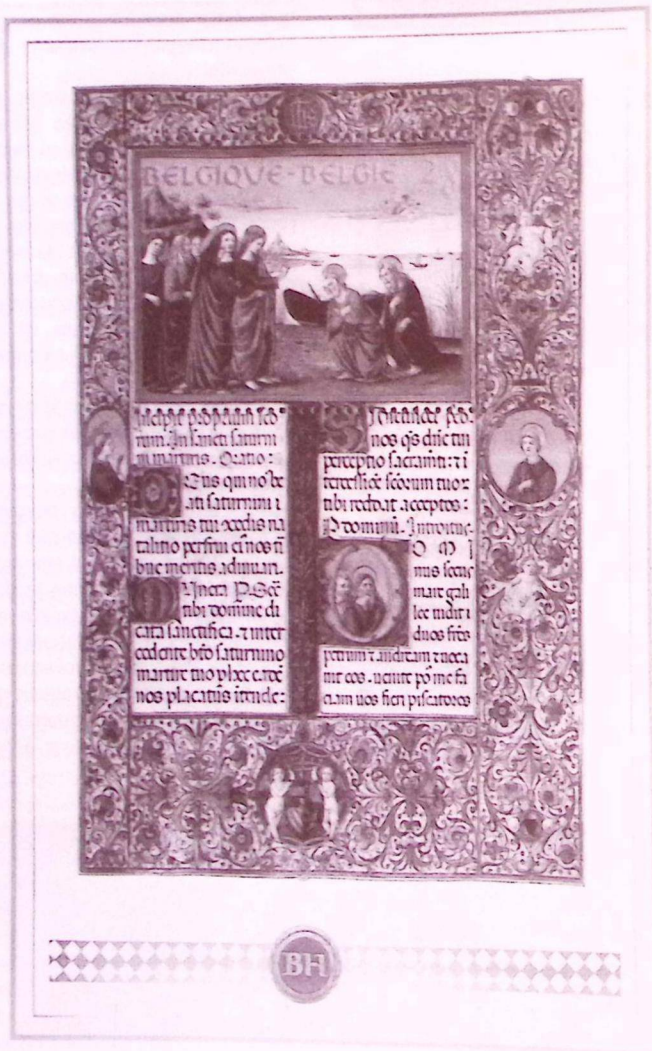 BELGIQUE - BELGIE 28
Incipit propriũ scõ
rum. In sancti saturni
ni martiris. Oratio:
Eus qui nos be
ati saturnini
martiris tui
talitio perfrui
bue meritis adiuuari.
Secꝛ̃
tibi domine di
cata sanctifica. ⁊ inter
cedente bto saturnino
martire tuo
nos placatus intende:
nos qs dñe tui
perceptio sacramẽti: ⁊ i
scõrum tuoꝝ
tibi reddat acceptos:
Introitus
O M I
nus secus
mare gali
lee uidit
duos frẽs
petrum ⁊ andream ⁊ uoca
uit eos. uenite põ me fa
ciam uos fieri piscatores
BH